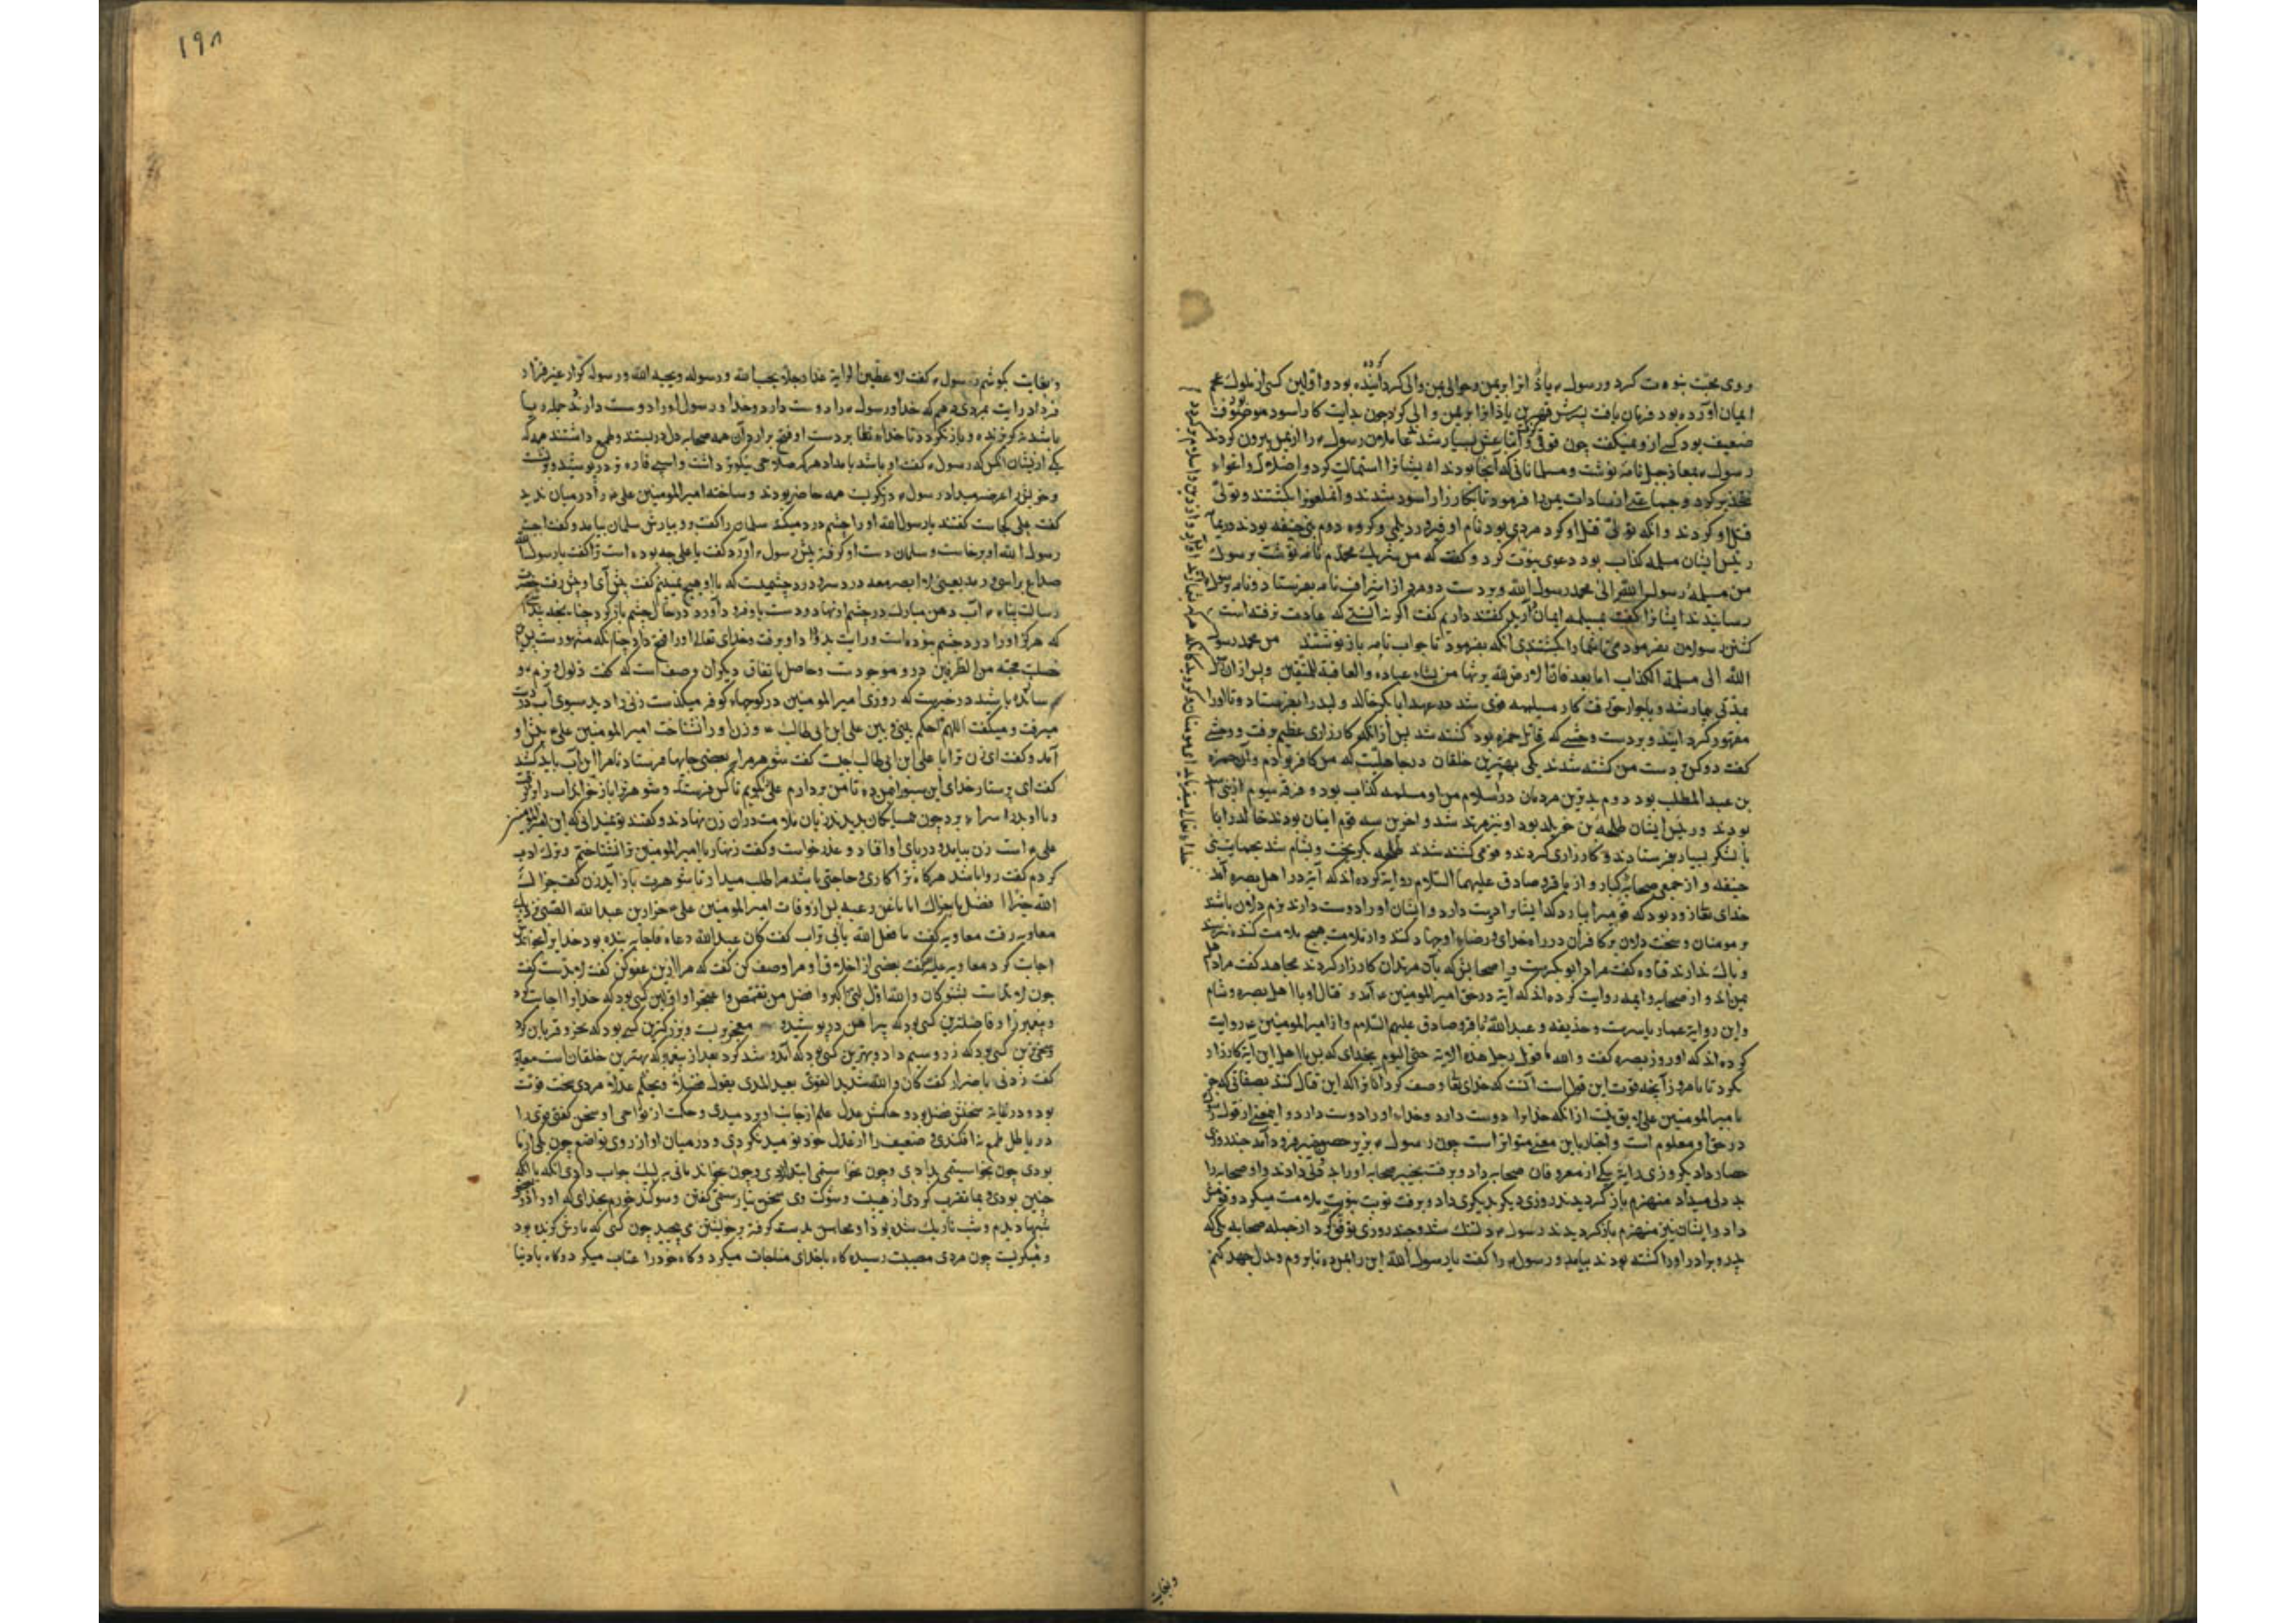 وی محبت نبوت کرد و رسول ء باذانرا بریمن و حوالی یمن والی گردانیده بود و اولین کسی از ملوک عجم
کرده
ایمان آورده بود فرمان یافت پسرش باذانرا بریمن والی کرد چون بدایت کار اسود موصوف
ضعیف بود کسی ازو نمیگفت چون قوی و اتباعش بسیار شد عاملان رسول ء را از یمن بیرون کردند
رسول ء بمعاذ جبل نامه نوشت و مسلمانانی که آنجا بودند ایشانرا استمالت کرد و اضلال و اغواء
تحذیر کرد و جماعتی از سادات یمن را فرمود تا بکارزار اسود شدند و آن ملعونرا کشتند و تولی
قتل او کردند و آنکه تولی قتل او کرد مردی بود نام او فیروز دیلمی و گروه دوم بنی حنیفه بودند در یمامه
رئیس ایشان مسیلمه کذاب بود دعوی نبوت کرد و گفت که من شریک محمدم نامه نوشت برسول
من مسیلمة رسول الله الی محمد رسول الله و بر دست دو مرد از اشراف نامه بفرستاد و نامه برسول
رسانیدند ایشانرا گفت بمسیلمه ایمان دارید گفتند داریم گفت اگر نه آنستی که عادت نرفته است
کشتن رسولان بفرمودمی تا شما را بکشتندی آنکه بفرمود تا جواب نامه باز نوشتند من محمد رسول
الله الی مسیلمة الکذاب اما بعد فان الارض لله یرثها من یشاء من عباده والعاقبة للمتقین و پس از آن
بمدتی بیمار شد و بجوار حق رفت کار مسیلمه قوی شد ابابکر خالد ولید را بفرستاد و تا او را
مقهور گردانید و بر دست وحشی که قاتل حمزه بود کشته شد پس از آنکه کارزاری عظیم برفت و وحشی
گفت دو کس بر دست من کشته شدند یکی بهترین خلقان در جاهلیت که من کافر بودم و آن حمزه
بن عبدالمطلب بود دوم بدترین مردمان در اسلام من و او مسیلمه کذاب بود و فرقه سیوم از بنی اسد
بودند و رئیس ایشان طلحة بن خویلد بود او نیز مرتد شد و آخرین سه قوم ایشان بودند خالد را با
با لشکر بسیار بفرستادند و کارزاری کردند و قومی کشته شدند طلحه بگریخت و بشام شد بحمایت بنی
حنیفه و از جمعی صحابه کبار و از باقر و صادق علیهما السلام روایت کرده‌اند که آیه در اهل بصره آمد
خدای تعالی زود بود که قومی را بیارد که ایشانرا دوست دارد و ایشان او را دوست دارند نرم دلان باشند
بر مومنان و سخت دلان بر کافران در راه خدای و رضاء او جهاد کنند و از ملامت هیچ ملامت کننده نترسند
و باک ندارند قتاده گفت مراد ابو بکرست و اصحابش که با آن مرتدان کارزار کردند مجاهد گفت مراد اهل
یمن‌اند و از صحابه و ائمه روایت کرده‌اند که آیه در حق امیرالمومنین ء آمد و قتال او با اهل بصره و شام
و این روایة عمار یاسرست و حذیفه و عبدالله و باقر و صادق علیهم السلام و از امیرالمومنین ء روایت
کرده‌اند که او روز بصره گفت والله ما قوتل رجل هذه الایة حتی الیوم بخدای که پس با اهل این آیه کارزار
نکردند تا بامروز و آنچه قوت این قول است آنست که خدای تعالی وصف کرد آنانرا که این قتال کنند بصفاتی که جز
بامیرالمومنین علی ء لایق نیست از آنکه خدایرا دوست دارد و خداء او را دوست دارد و این معنی از قول رسول
در حق او معلوم است و اخبار باین معنی متواتر است چون رسول ء بزیر حصن خیبر فرود آمد چند روزی
حصار داد یکروزی رایة بیکی از معروفان صحابه داد و برفت بخیبر صحابه او را بد دلی دادند و او صحابه را
بد دلی میداد منهزم بازگردیدند روزی دیگر بدیگری داد و برفت نوبت بنوبت ملامت میکرد و قوتش
داد و ایشان نیز منهزم بازگردیدند رسول ء دلتنگ شد و چند روزی توقف کرد از جمله صحابه یکی که
پدر و برادر او را کشته بودند بیامد و رسول ء را گفت یا رسول الله این رایه بمن ده تا بروم و بذل جهد کنم
وبغایت
١٩٨
وبغایت بکوشم رسول ء گفت لاعطین الرایة غدا رجلا یحب الله ورسوله ویحبه الله ورسوله کرار غیر فرار
فردا رایت بمردی دهم که خدا و رسول ء را دوست دارد و خدا و رسول او را دوست دارند حمله برنده
باشد نه گریزنده و باز نگردد تا خداء تعالی بر دست او فتح برارد آن همه صحابه دل دربستند و طمع داشتند همه که
یکی از ایشان آنکس که رسول ء گفت او باشد بامداد هرکه سلاحی نیکوتر داشت و اسبی فاره‌تر در پوشید و برنشست
و خویش را عرضه میداد رسول ء در نگریست همه حاضر بودند و ساخته امیرالمومنین علی ء را در میان ندید
گفت علی کجاست گفتند یا رسول الله او را چشم درد میکند سلمان را گفت رو و بیارش سلمان بیامد و گفت اجب
رسول الله او برخاست و سلمان دست او گرفته پیش رسول ء آورد گفت یا علی چه بوده است ترا گفت یا رسول الله
صداع براسی و رمد بعینی لا ابصر معه درد سر و درد چشمیست که با او هیچ نمی‌بینم گفت پیش آی او پیش رفت حضرت
رسالت پناه ء آب دهن مبارک در چشم او نهاد و دست باو فرود آورد در حال چشم باز کرد چنان
که هرگز او را درد چشم نبوده است و رایت بدو داد و برفت و خدای تعالی او را فتح داد چنانکه مشهور است پس
خصلت محبة من الطرفین درو موجودست و حاصل باتفاق دیگران وصف است که گفت ذلول و نرم و
باشد در خبرست که روزی امیرالمومنین در کوچهاء کوفه میگذشت زنی را دید سبوی آب در دست
میرفت و میگفت اللهم احکم بینی و بین علی ابن ابی طالب ء و زن او را نشناخت امیرالمومنین علی ء پیش او
آمد و گفت ای زن ترا با علی ابن ابی طالب چیست گفت شوهر مرا ببعضی جایها فرستاد تا مرا این آب باید کشید
گفت ای پرستار خدای این سبو را بمن ده تا من بردارم و علی را بگویم تا کس فرستد و شوهر ترا باز خواند
وبا او بدر سراء برد چون همسایگان بدیدند زبان ملامت در آن زن نهادند و گفتند تو نمیدانی که این امیرالمومنین
علی ء است زن بیامد و در پای او افتاد و عذر خواست و گفت زنهار یا امیرالمومنین ترا نشناختم و ترک ادب
کردم گفت روا باشد هرگاه ترا کاری و حاجتی باشد مرا طلب میدار تا شوهرت باز آید زن گفت جزاک
الله خیرا پس از وفات امیرالمومنین علی ء ضرار بن عبدالله الضبی نزدیک
معاویه رفت معاویه گفت ما فعل الله بابی تراب گفت کان عبدالله دعاه فاجابه بنده بود خدایرا بخواندش
اجابت کرد معاویه گفت بعضی از اخلاق او مرا وصف کن گفت که مرا ازین عفو کن گفت لابدست گفت
چون لابد است بشنو کان والله اول
و پیغمبر را و فاضلترین کسی بود که پیراهن در پوشید و بزرگترین کسی بود که نحر و قربان کرد
و سخی‌ترین کسی بود که زر و سیم داد و بهترین کسی بود بعد از پیغمبر که بهترین خلقان است معاویه
گفت زدنی یا ضرار گفت کان والله شدید القوی بعید المدی یقول فضلا و یحکم عدلا مردی سخت قوت
بود و دور غایة سخنش فصل بود و حکمش عدل علم از جانب او بردمیدی و حکمت از نواحی او سخن گفتی قوی را
در باطل طمع نیفکندی و ضعیف را از عدل خود نومید نکردی و در میان ما او از روی تواضع چون یکی از ما
بودی چون بخواستیمی بدادی و چون نخواستیمی ابتدا کردی و چون بخواندیمانی به لبیک جواب دادی آنکه با آنکه
چنین بودی و بما تقرب کردی از هیبت و شوکت وی سخن نیارستیمی گفتن و سوگند خورم بخدای که او را در
شبها دیدم و شب تاریک شده بود او محاسن بدست گرفته بر خویشتن می‌پیچید چون کسی که مارش گزیده بود
و میگریست چون مردی مصیبت رسیده گاه با خدای مناجات میکرد و گاه خود را عتاب میکرد و گاه با دنیا